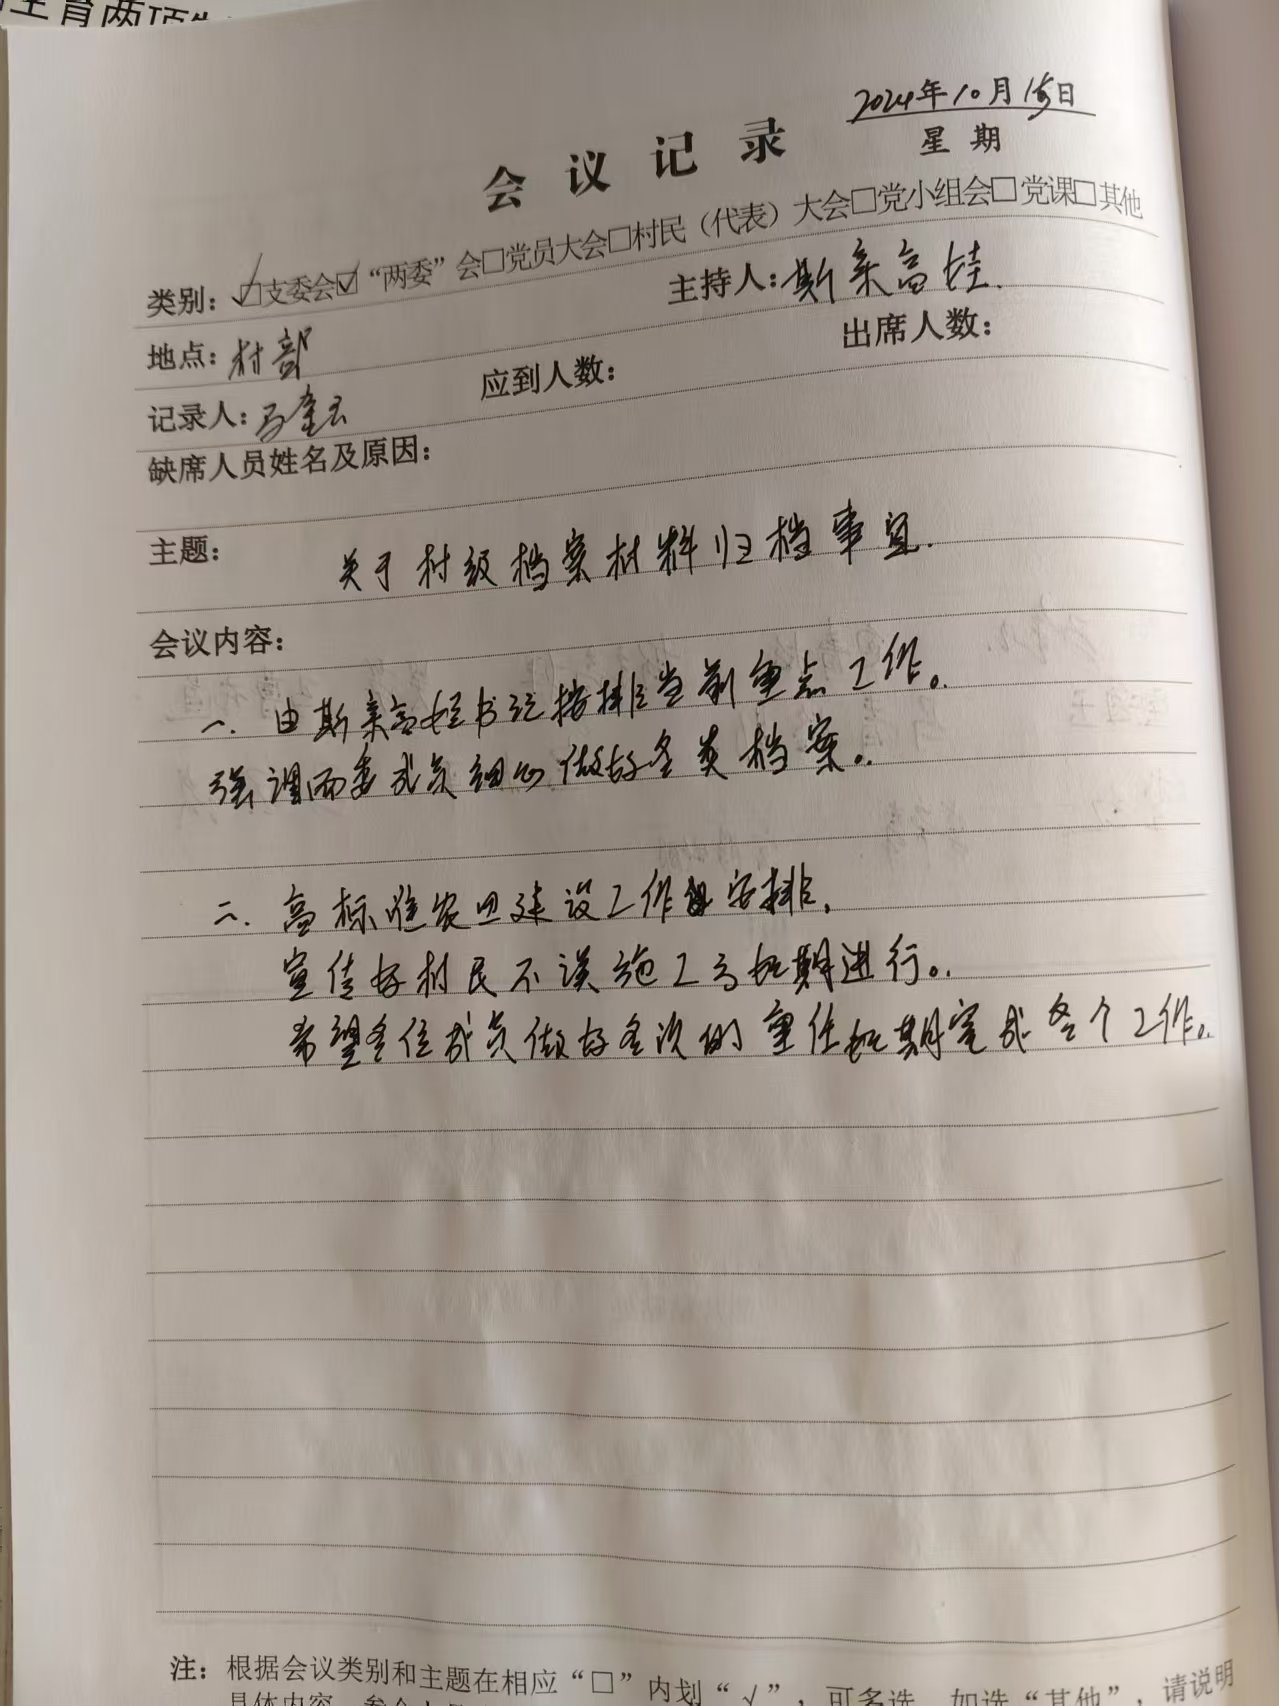 2024年10月15日
星期
会议记录
类别：☑支委会☑“两委”会□党员大会□村民（代表）大会□党小组会□党课□其他
地点：村部 主持人：斯亲高娃.
记录人：马金云 应到人数： 出席人数：
缺席人员姓名及原因：
主题： 关于村级档案材料归档事宜.
会议内容：
一. 由斯亲高娃书记按排当前重点工作。
强调两委成员细心做好各类档案。
二. 高标准农田建设工作安排,
宣传好村民不误施工 期进行。
希望各位成员做好各次的重任 期完成各个工作。
注：根据会议类别和主题在相应“□”内划“√”，可多选，如选“其他”，请说明